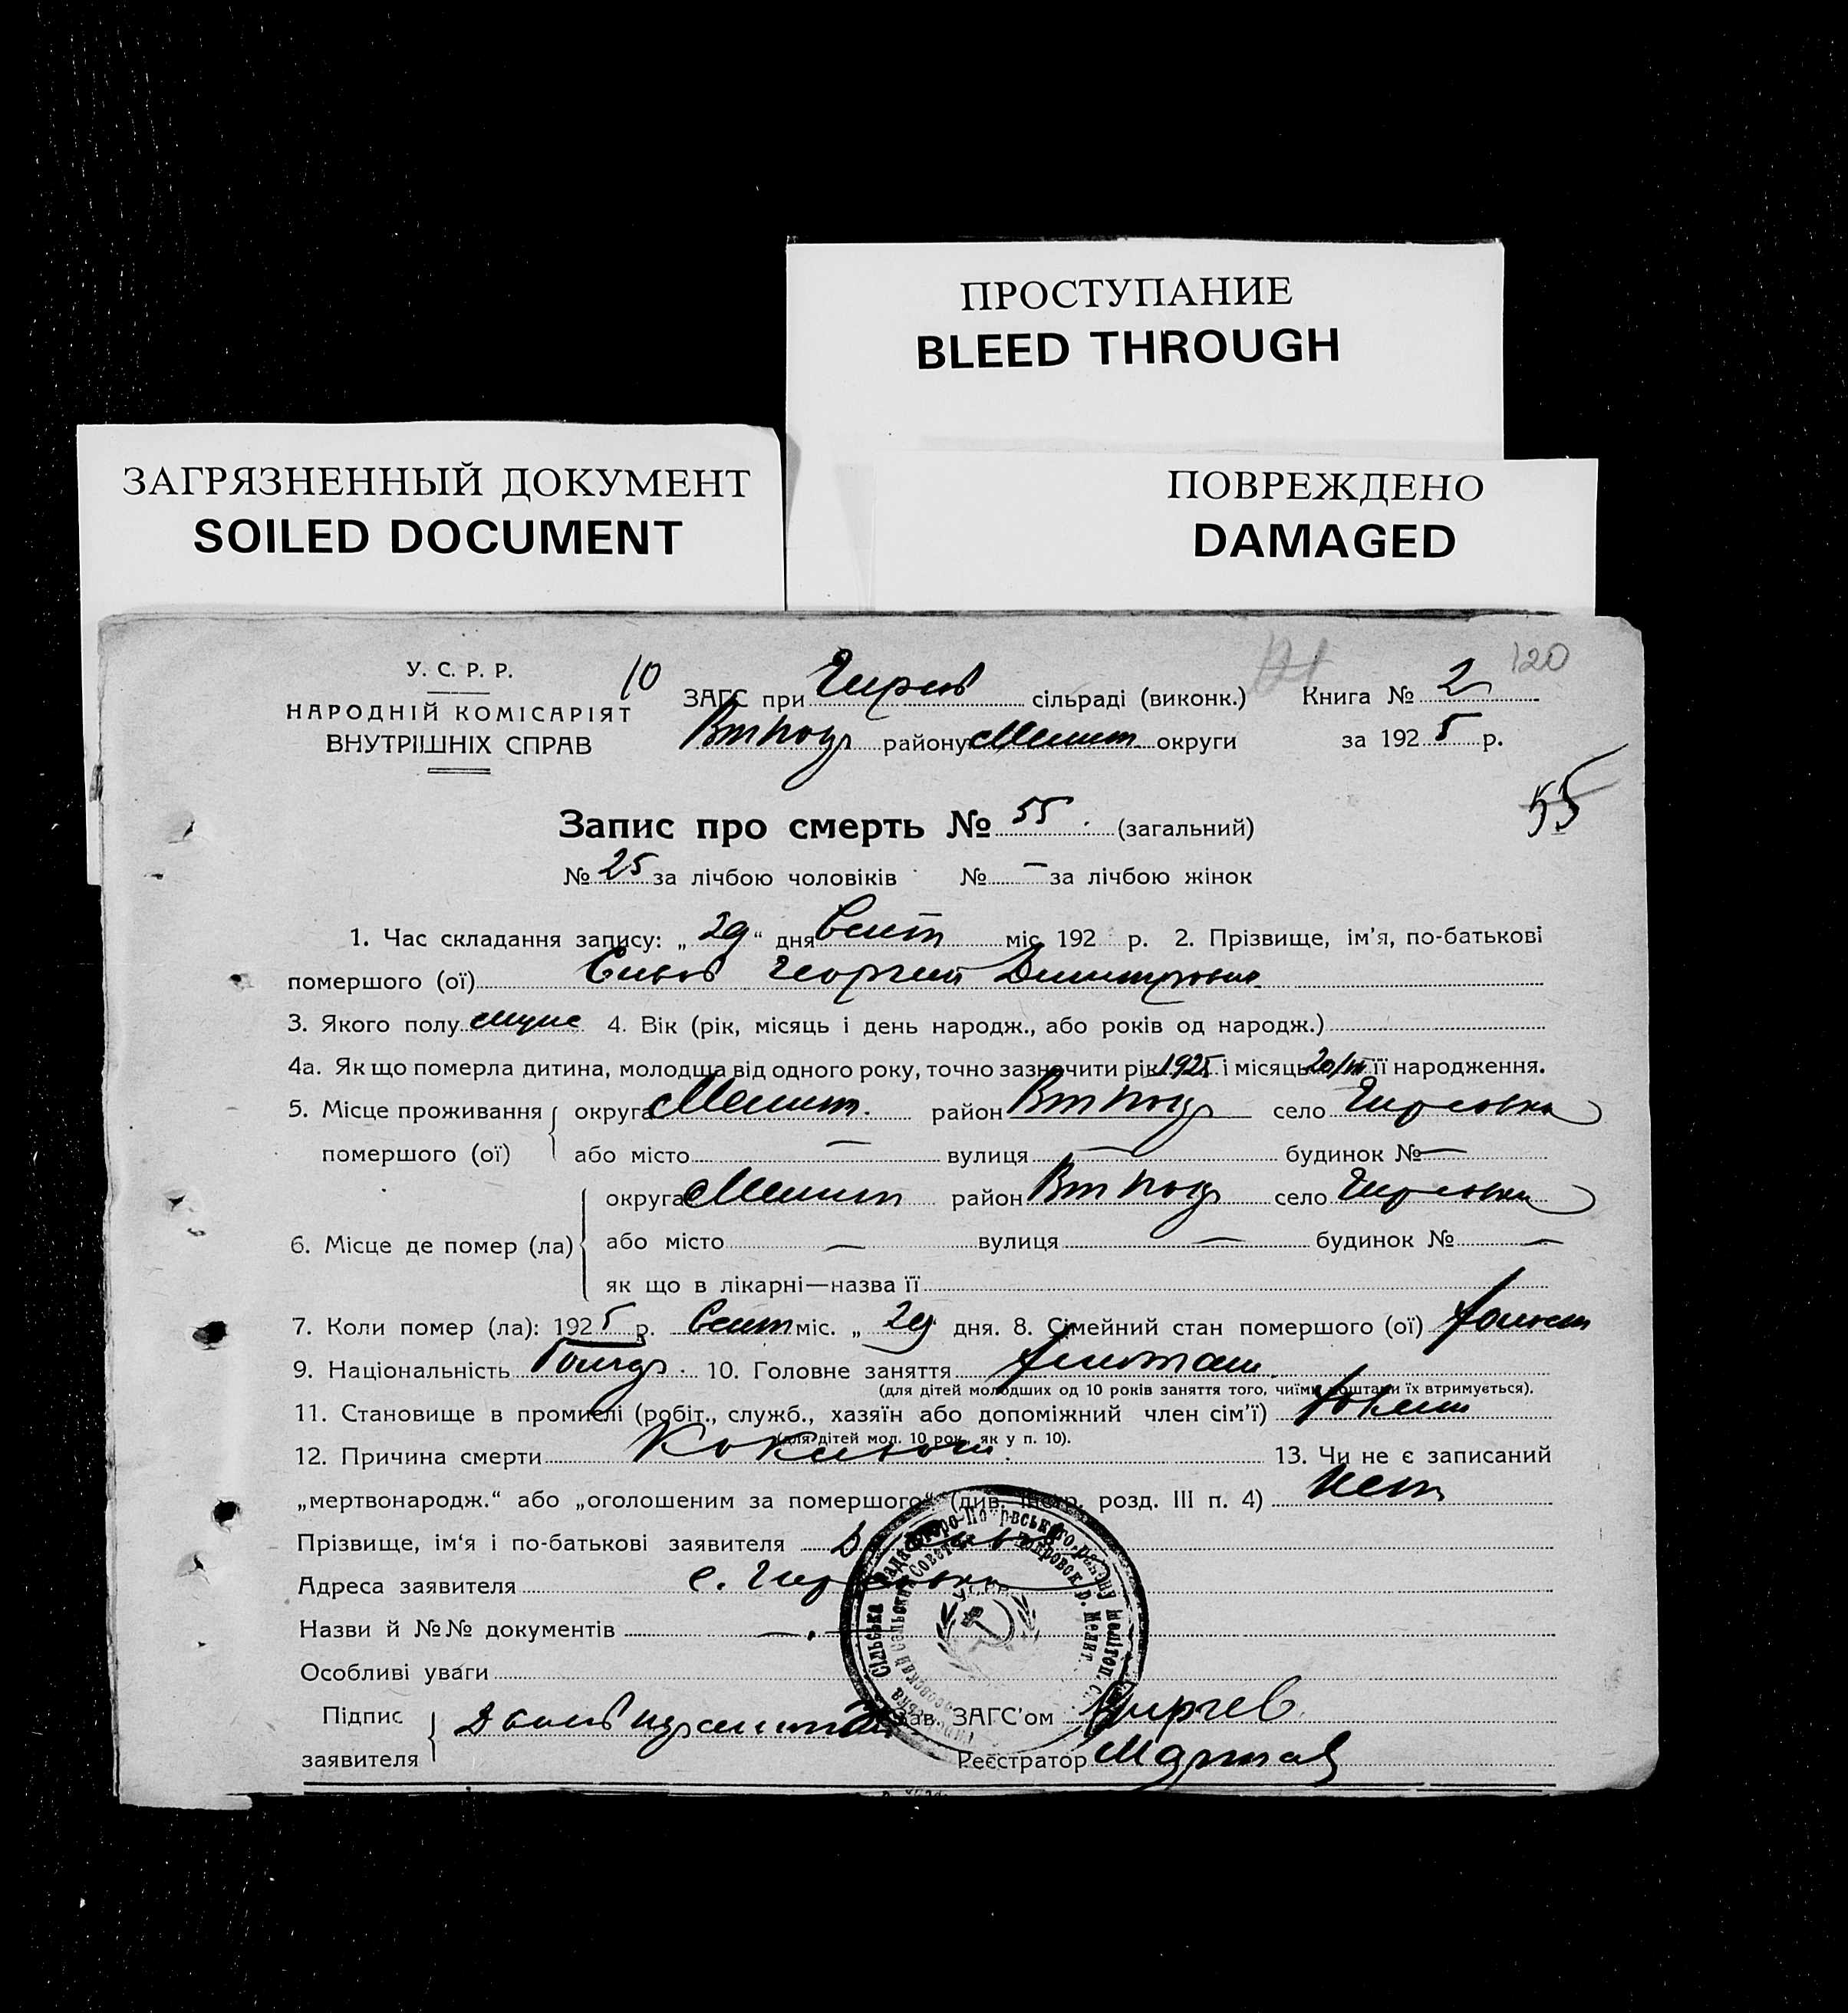 ПРОСТУПАНИЕ
BLEED THROUGH
ЗАГРЯЗНЕННЫЙ ДОКУМЕНТ
SOILED DOCUMENT
ПОВРЕЖДЕНО
DAMAGED
120
У. С. Р. Р.
НАРОДНІЙ КОМІСАРІЯТ
ВНУТРІШНІХ СПРАВ
10
ЗАГС при Гирсов сільраді (виконк.) Книга № 2
району Мелит. округи за 1925 р.
55
Запис про смерть № 55. (загальний)
№ 25 за лічбою чоловіків № — за лічбою жінок
1. Час складання запису: „29“ дня Сент міс 192 р. 2. Прізвище, ім'я, по-батькові
помершого (ої) Георгий Димитрович
3. Якого полу муж 4. Вік (рік, місяць і день народж., або років од народж.)
4а. Як що померла дитина, молодша від одного року, точно зазначити рік 1925 і місяць її народження.
5. Місце проживання помершого (ої) округа Мелит. район село Гирсовка
або місто — вулиця — будинок № —
6. Місце де помер (ла) округа Мелит район село Гирсовка
або місто — вулиця — будинок № —
як що в лікарні—назва її
7. Коли помер (ла): 1925 р. Сент міс. „29 дня. 8. Сімейний стан помершого (ої) холост
9. Національність 10. Головне заняття
(для дітей молодших од 10 років заняття того, чиїми коштами їх втримується).
11. Становище в промислі (робіт., служб., хазяїн або допоміжний член сім'ї)
(для дітей мол. 10 рок. як у п. 10).
12. Причина смерти 13. Чи не є записаний
„мертвонародж.“ або „оголошеним за помершого“ (див. інстр. розд. III п. 4) Нет
Прізвище, ім'я і по-батькові заявителя Д
Адреса заявителя с. Гирсовка
Назви й №№ документів —
Особливі уваги
Підпис заявителя Зав. ЗАГС'ом
Реєстратор